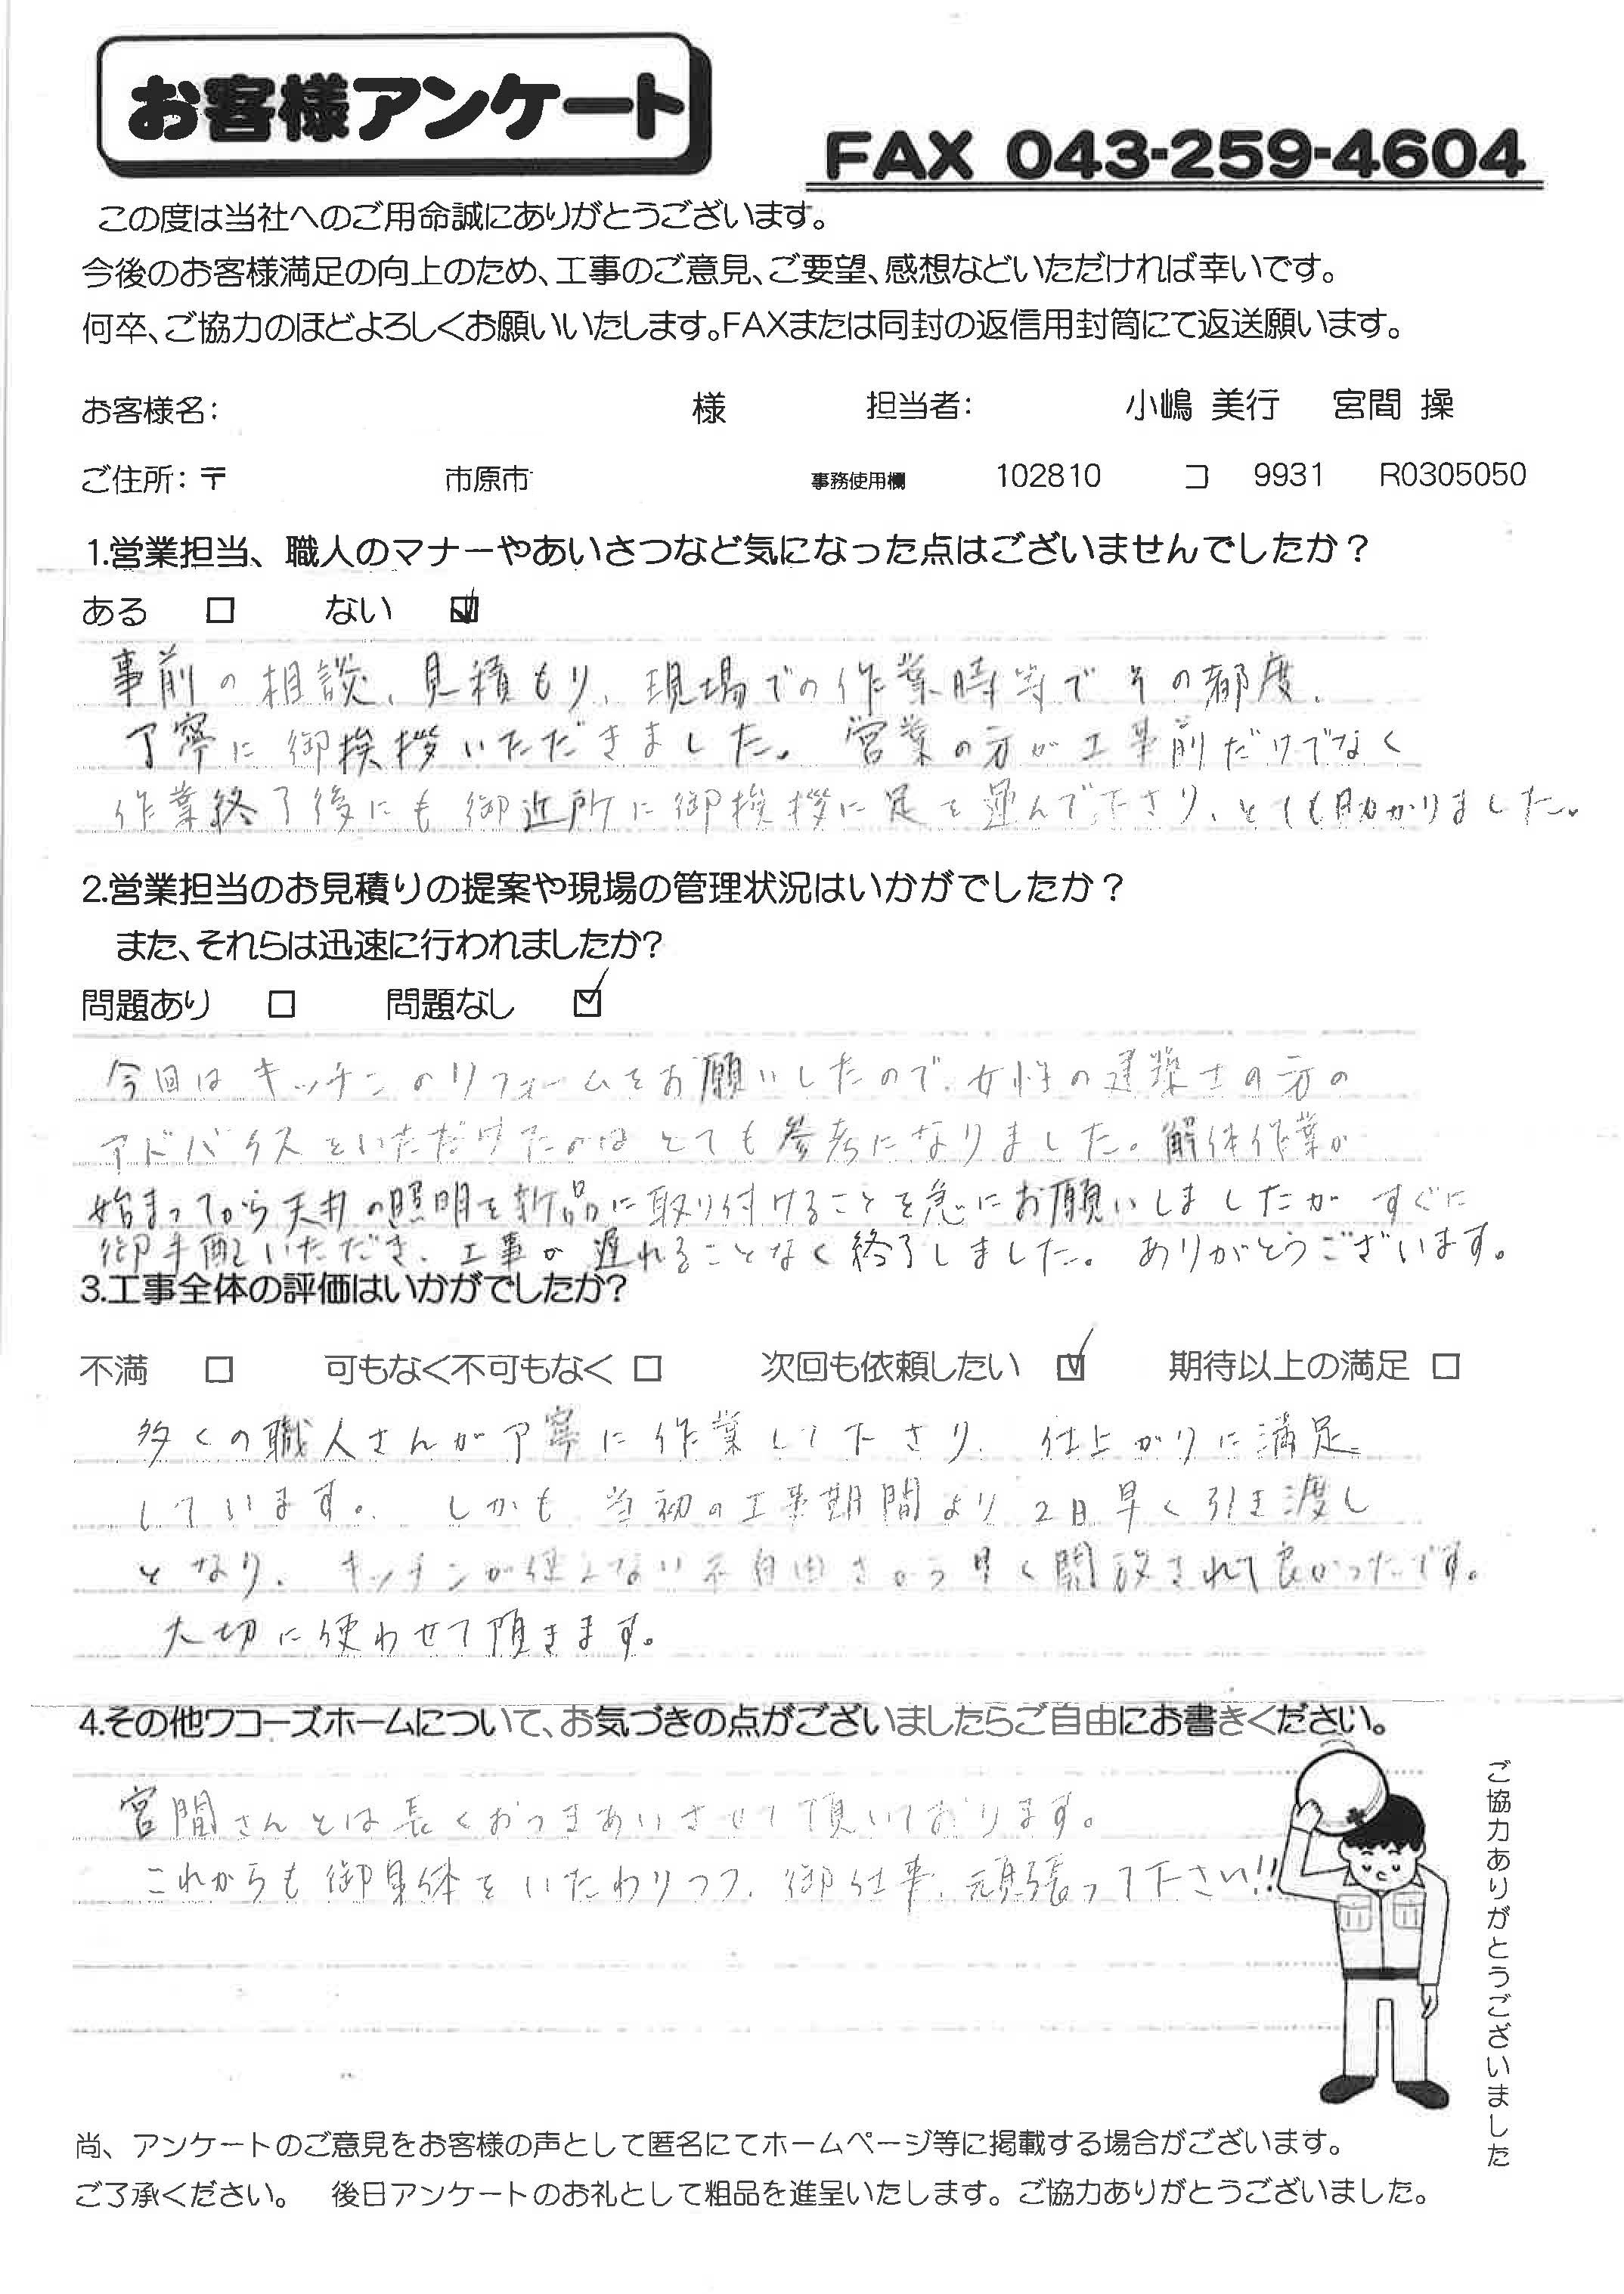 お客様アンケート
FAX 043-259-4604
この度は当社へのご用命誠にありがとうございます。
今後のお客様満足の向上のため、工事のご意見、ご要望、感想などいただければ幸いです。
何卒、ご協力のほどよろしくお願いいたします。FAXまたは同封の返信用封筒にて返送願います。
お客様名： 様 担当者： 小嶋 美行 宮間 操
ご住所：〒 市原市 事務使用欄 102810 コ 9931 R0305050
1.営業担当、職人のマナーやあいさつなど気になった点はございませんでしたか？
ある □ ない ☑
事前の相談、見積もり、現場での作業時等でその都度、
丁寧に御挨拶いただきました。営業の方が工事前だけでなく
作業終了後にも御近所に御挨拶に足を運んで下さり、とても助かりました。
2.営業担当のお見積りの提案や現場の管理状況はいかがでしたか？
また、それらは迅速に行われましたか？
問題あり □ 問題なし ☑
今回はキッチンのリフォームをお願いしたので、女性の建築士の方の
アドバイスをいただけたのはとても参考になりました。解体作業が
始まってから天井の照明を新品に取り付けることを急にお願いしましたがすぐに
御手配いただき、工事が遅れることなく終了しました。ありがとうございます。
3.工事全体の評価はいかがでしたか？
不満 □ 可もなく不可もなく □ 次回も依頼したい ☑ 期待以上の満足 □
多くの職人さんが丁寧に作業して下さり、仕上がりに満足
しています。しかも当初の工事期間より2日早く引き渡し
となり、キッチンが使えない不自由さから早く開放されて良かったです。
大切に使わせて頂きます。
4.その他ワコーズホームについて、お気づきの点がございましたらご自由にお書きください。
宮間さんとは長くおつきあいさせて頂いております。
これからも御身体をいたわりつつ、御仕事、頑張って下さい!!
ご協力ありがとうございました
尚、アンケートのご意見をお客様の声として匿名にてホームページ等に掲載する場合がございます。
ご了承ください。 後日アンケートのお礼として粗品を進呈いたします。ご協力ありがとうございました。